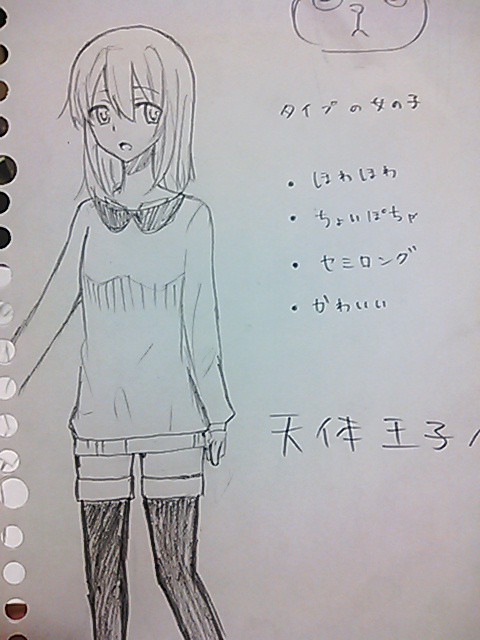 タイプの女の子
• ほわほわ
• ちょいぽちゃ
• セミロング
• かわいい
天体王子